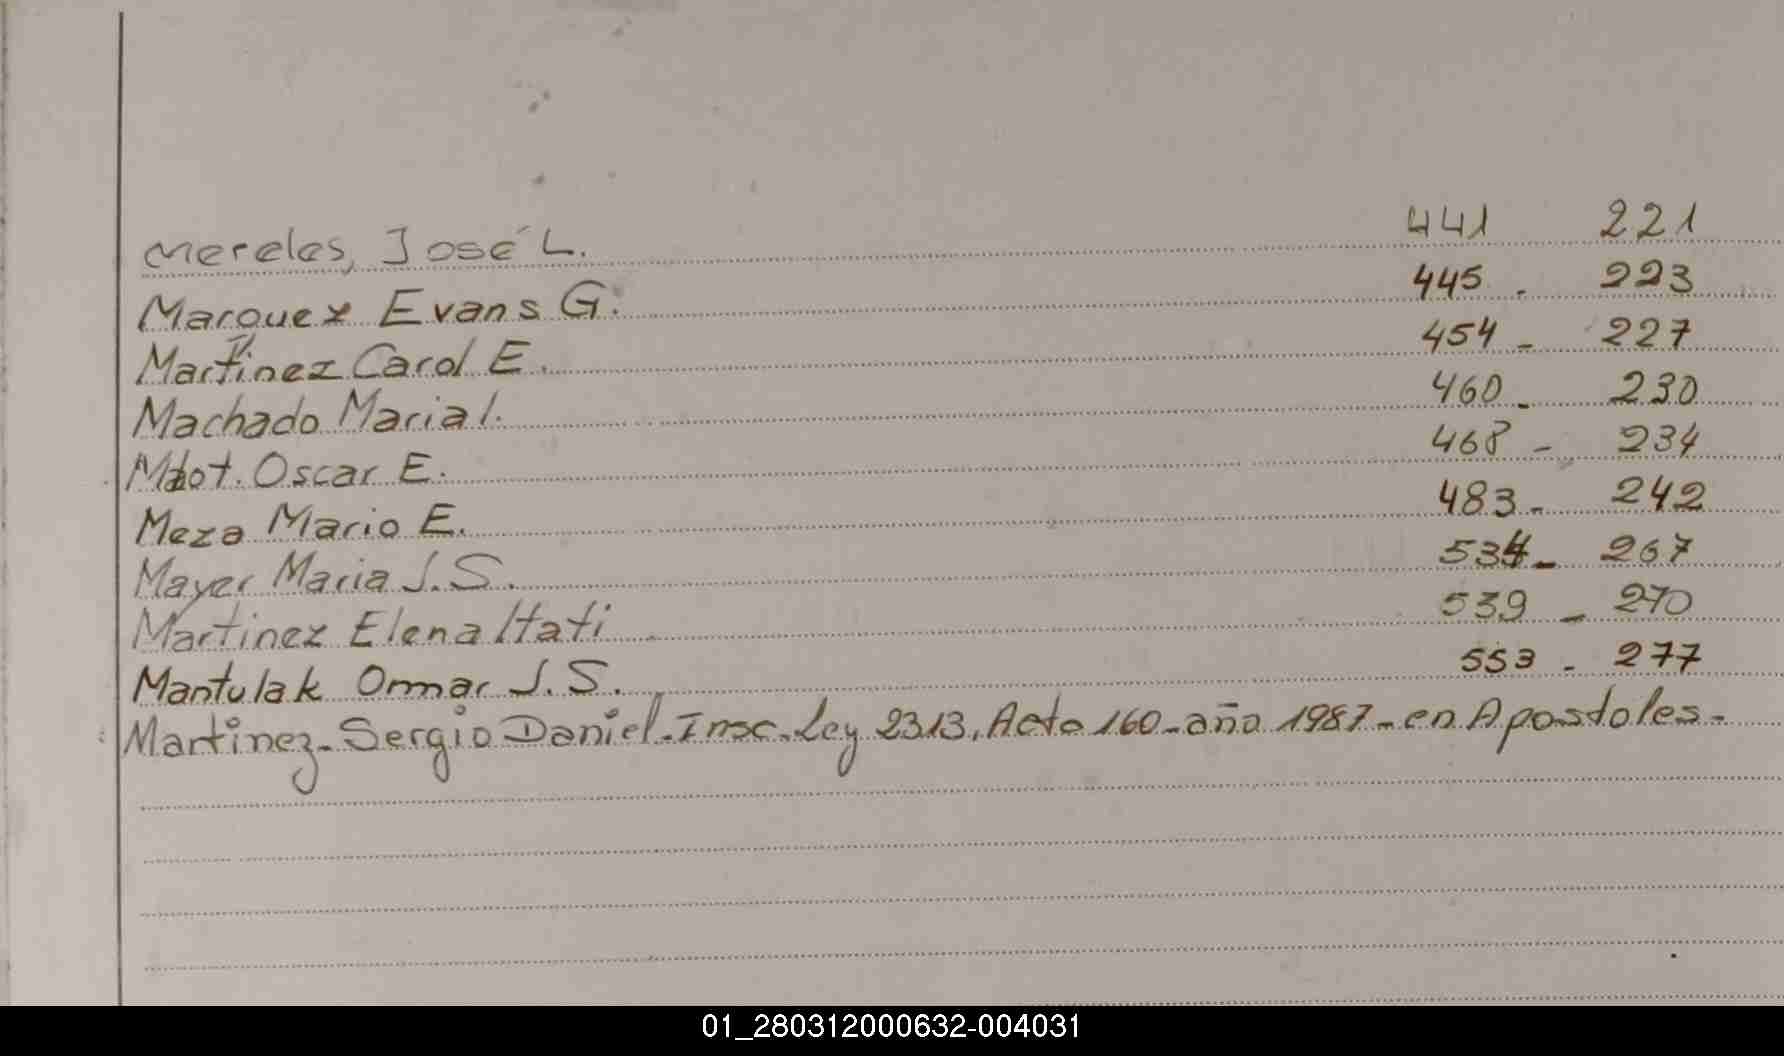 Mereles, José L. 441 221
Marquez Evans G. 445 - 223
Martinez Carol E. 454 - 227
Machado Maria I. 460 - 230
Oscar E. 468 - 234
Meza Mario E. 483 - 242
Mayer Maria J. S. 534 - 267
Martinez Elena Itati 539 - 270
Mantulak Ommar J. S. 553 - 277
Martinez - Sergio Daniel - Insc. Ley 2313, Acto 160 - año 1987 - en Apostoles -
01_280312000632-004031